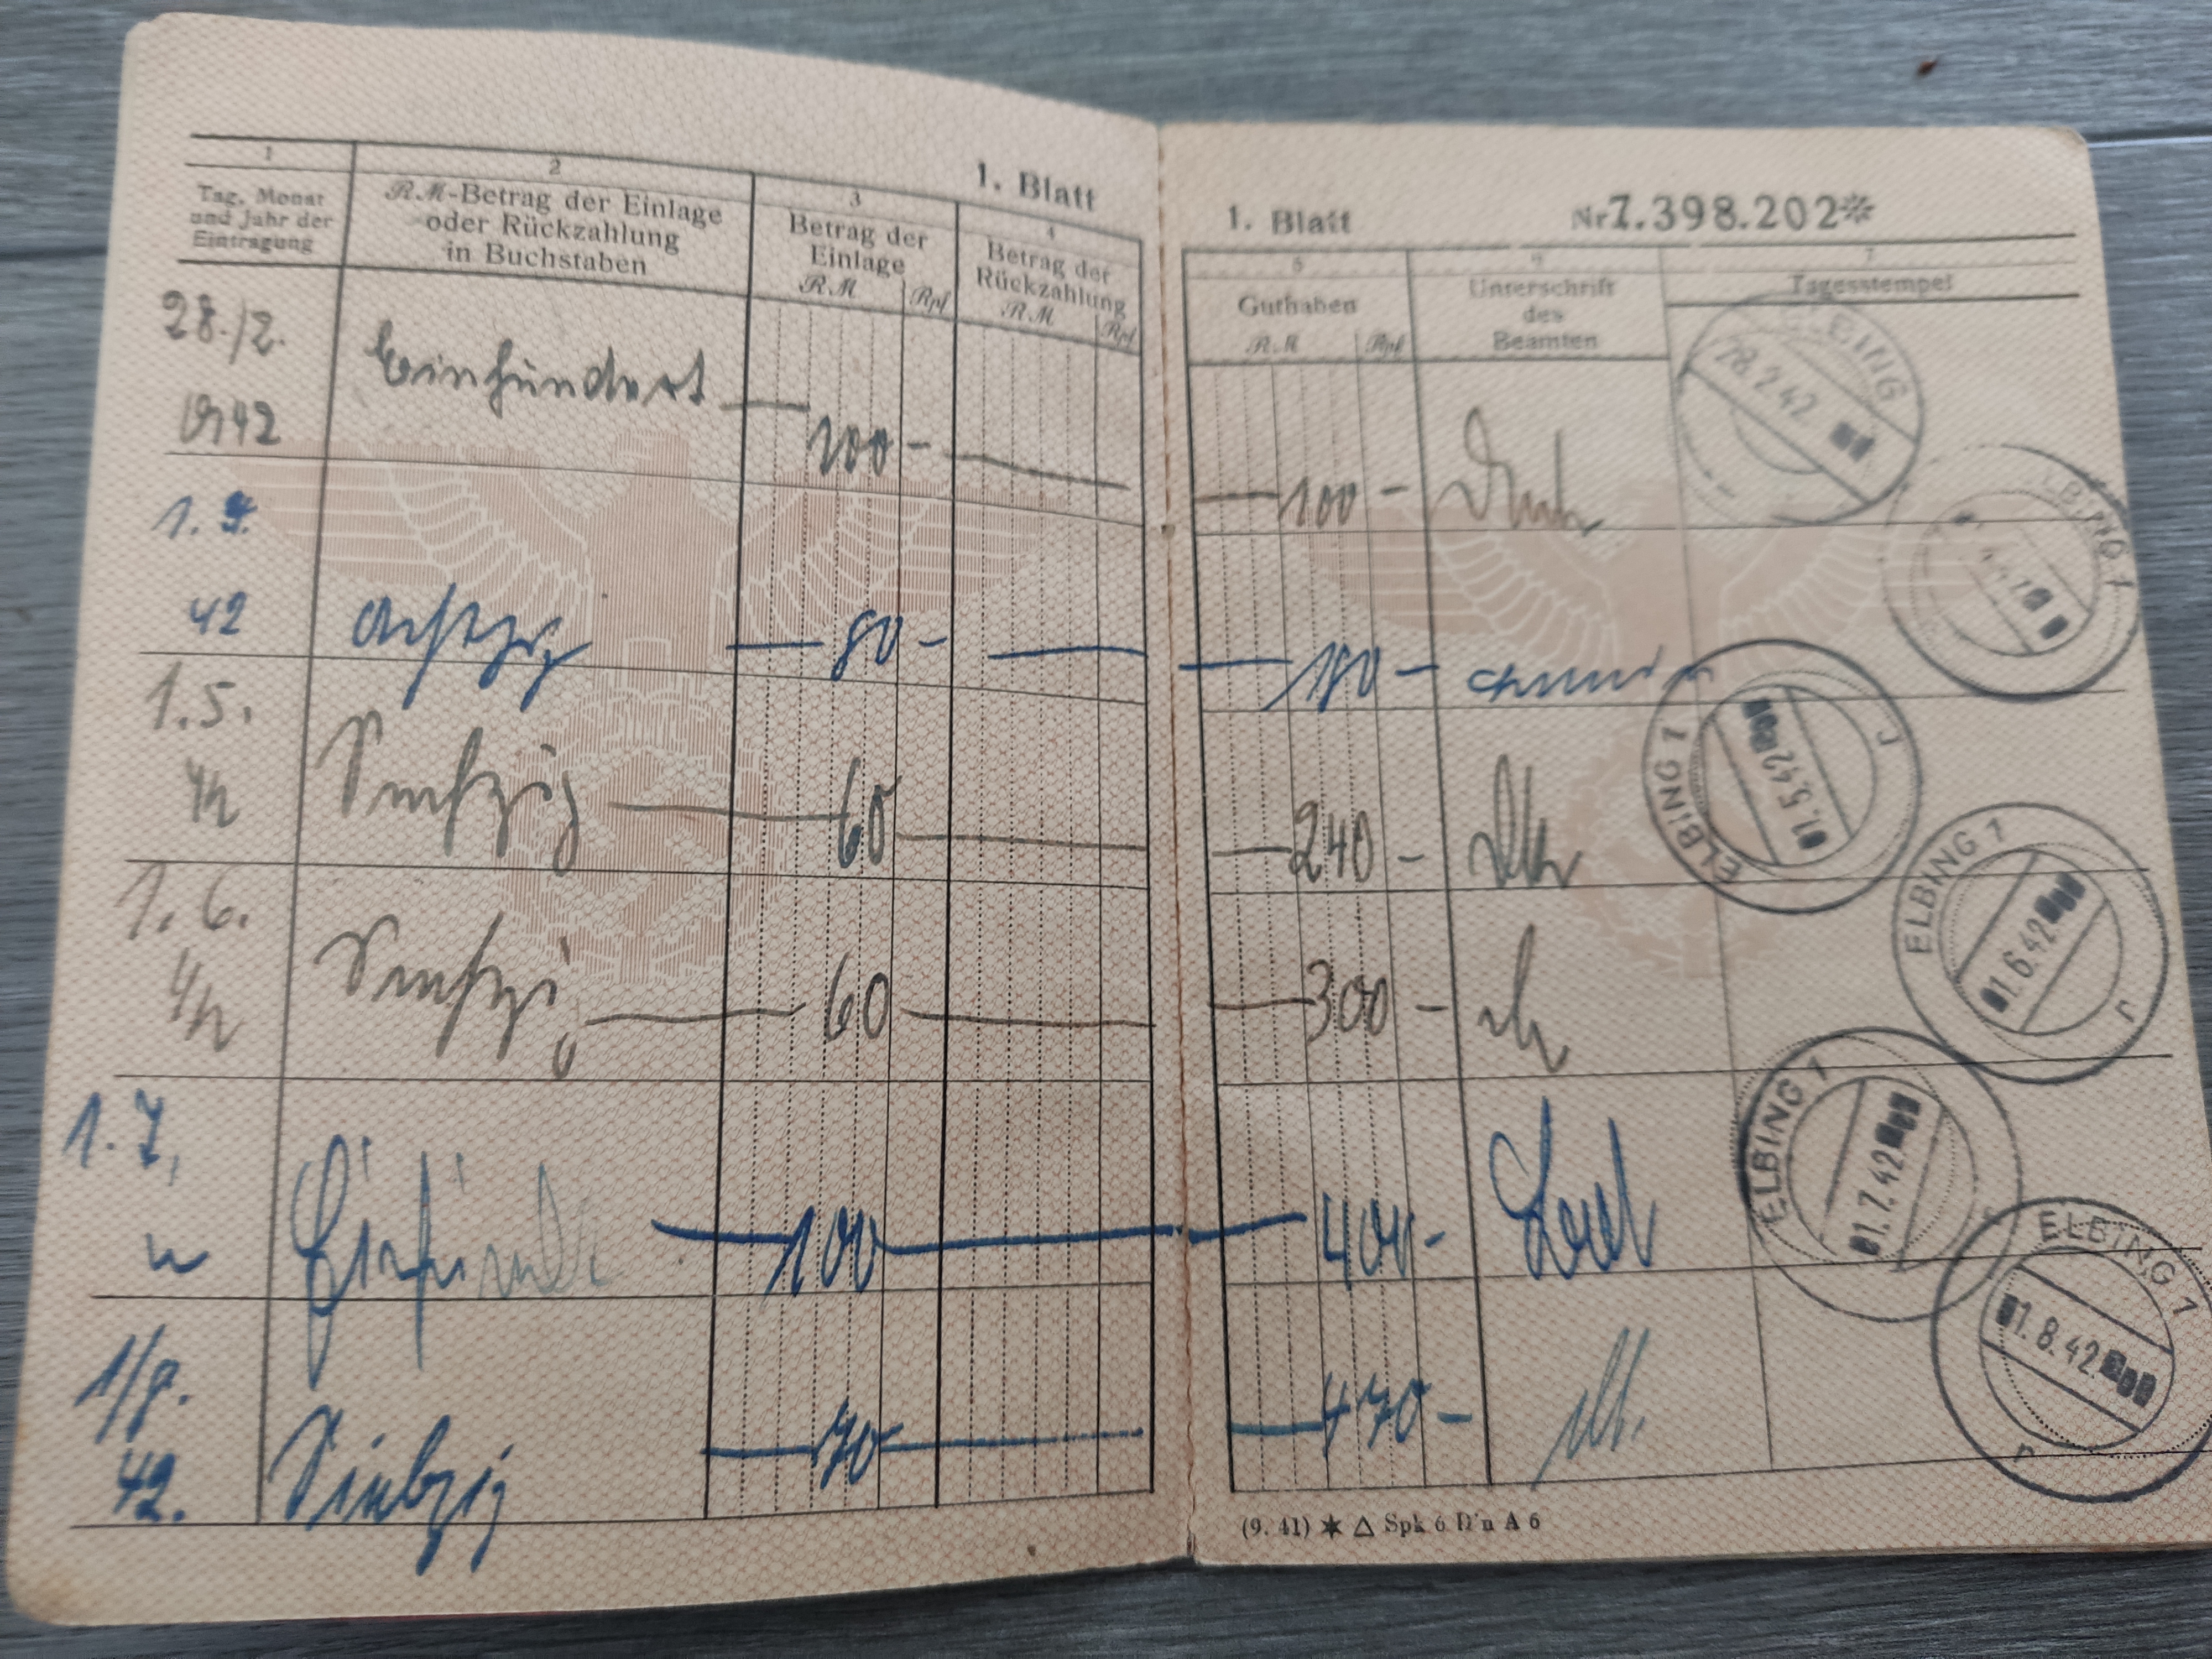 1. Blatt
1
2
3
4
Tag, Monat
und Jahr der
Eintragung
RM-Betrag der Einlage
oder Rückzahlung
in Buchstaben
Betrag der
Einlage
RM Rpf
Betrag der
Rückzahlung
RM Rpf
28./2.
42
Einhundert — 100 —
1.
42
Achtzig — 80 —
1.5.
42
Sechzig — 60 —
1.6.
42
Sechzig — 60 —
1.7.
Einhund — 100 —
1/8.
42.
Siebzig — 70 —
1. Blatt Nr 7.398.202*
5
6
7
Guthaben
RM Rpf
Unterschrift
des
Beamten
Tagesstempel
— 100 —
— 180 —
— 240 —
— 300 —
— 400 —
— 470 —
ELBING
28.2.42
ELBING 1
ELBING 7
01.5.42
r
ELBING 1
01.6.42
r
ELBING 1
01.7.42
ELBING 1
01.8.42
r
(9. 41) ★ △ Spk 6 D'n A 6